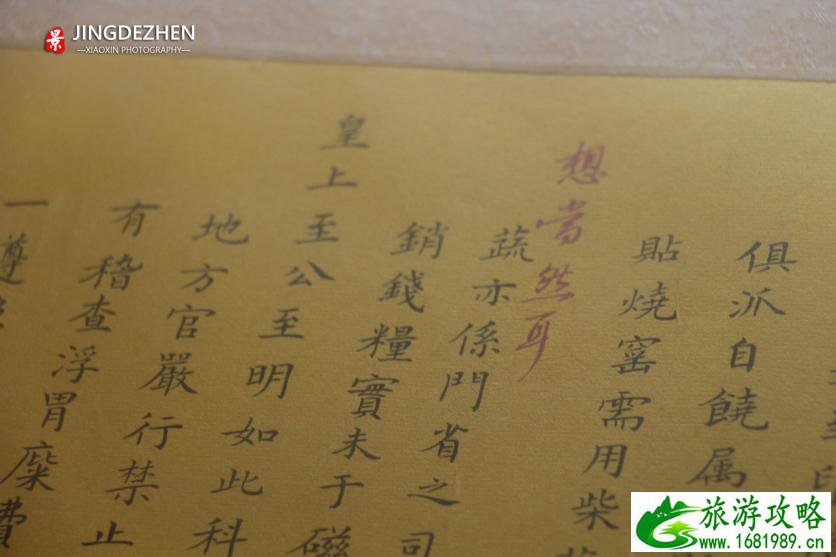 景 JINGDEZHEN
—XIAOXIN PHOTOGRAPHY—
俱派自饒属
貼燒窰需用柴
想當然耳
蔬亦係門省之司
銷錢糧實未于磁
皇上至公至明如此科
地方官嚴行禁止
有稽查浮冒糜費
一遵
旅游攻略
www.1681989.cn